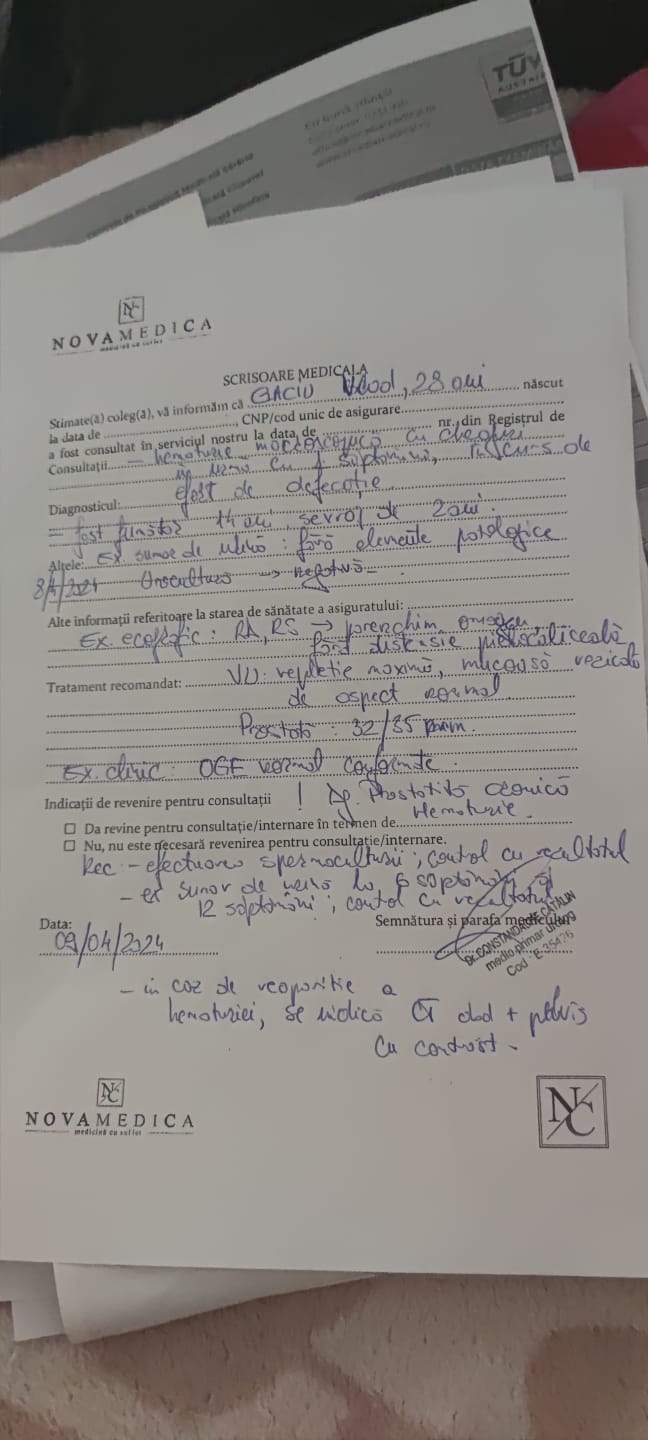 TÜV
AUSTRIA
NC
NOVAMEDICA
medicină cu suflet
SCRISOARE MEDICALA
Stimate(ă) coleg(ă), vă informăm că BACIU Vlad, 28 ani născut
la data de, CNP/cod unic de asigurare
a fost consultat în serviciul nostru la data de nr. din Registrul de
Consultații - hematurie macroscopică cu cheaguri
cu 1 săptămână, în curs de
Diagnosticul: efort de defecație
- fost fumător 14 ani, sevraj de 2 ani.
Altele: Ex. sumar de urină: fără elemente patologice
8/4/2024 Urocultura → negativă
Alte informații referitoare la starea de sănătate a asiguratului:
Ex. ecografic: RD, RS → parenchim omogen,
fără distensie pielocaliceală
Tratament recomandat: VU: repletie maximă, mucoasă vezicală
de aspect normal
Prostată: 32/35 mm.
Ex. clinic: OGE normal conformate.
Indicații de revenire pentru consultații ! Dg. Prostatită cronică
Hematurie.
Da revine pentru consultație/internare în termen de
Nu, nu este necesară revenirea pentru consultație/internare.
Rec: - efectuarea spermoculturii; control cu rezultatul
- ex sumar de urină la 6 săptămâni și
12 săptămâni; control cu rezultatul
Data: Semnătura și parafa medicului
09/04/2024
Dr. CONSTANDACHE CĂTĂLIN
medic primar urolog
Cod: E 35426
- in caz de reapariție a
hematuriei, se ridică CT abd + pelvis
cu contrast.
NC
NOVAMEDICA
medicină cu suflet
NC